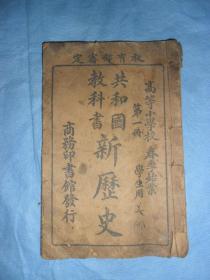 教育部審定
高等小學校 春季始業
第一冊
學生用
共和國
教科書
新歷史
商務印書館發行